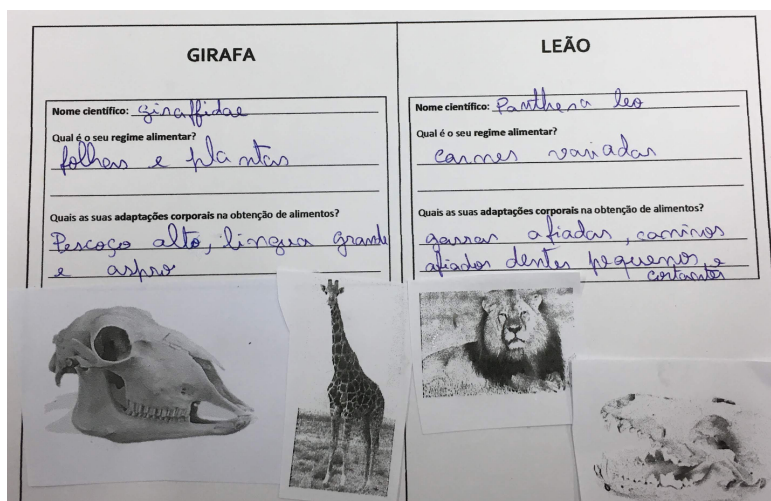 GIRAFA
Nome científico: giraffidae
Qual é o seu regime alimentar?
folhas e plantas
Quais as suas adaptações corporais na obtenção de alimentos?
Pescoço alto, lingua grande
e aspro
LEÃO
Nome científico: Panthera leo
Qual é o seu regime alimentar?
carnes variadas
Quais as suas adaptações corporais na obtenção de alimentos?
garras afiadas, caninos
afiados dentes pequenos e
cortantes